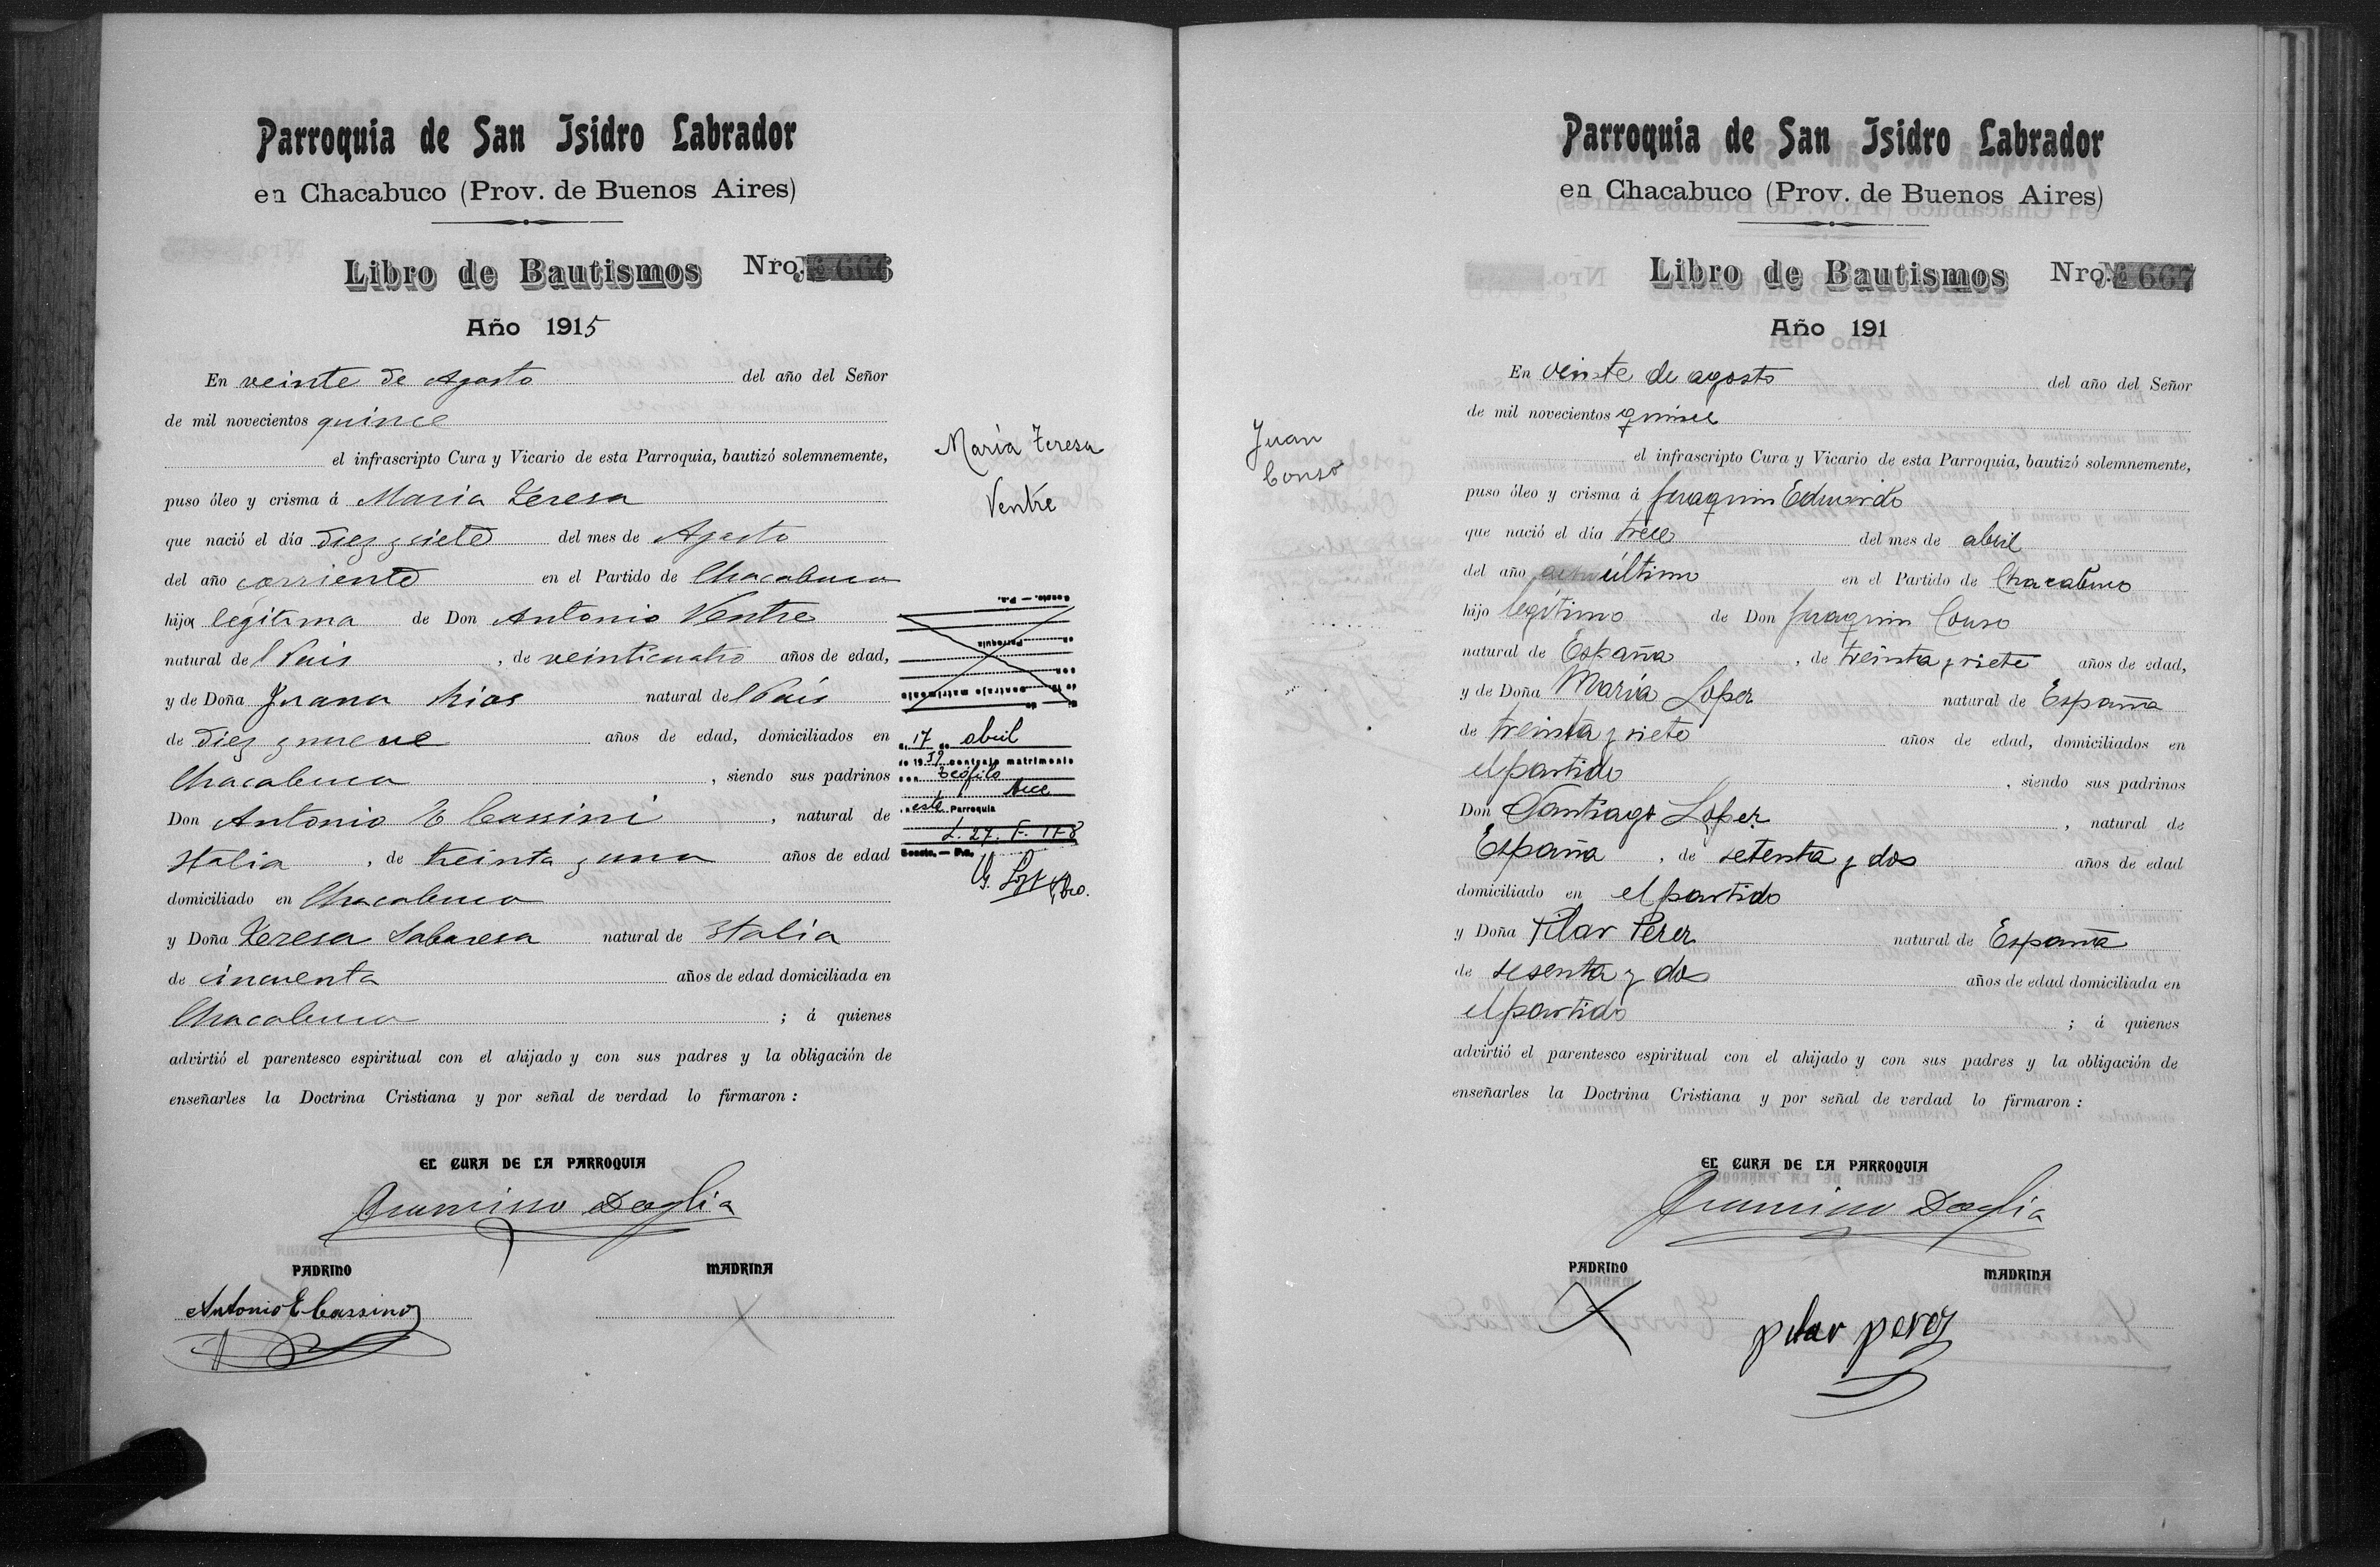 Parroquia de San Isidro Labrador
en Chacabuco (Prov. de Buenos Aires)
Libro de Bautismos Nro. № 666
Año 1915
En veinte de Agosto del año del Señor
de mil novecientos quince
el infrascripto Cura y Vicario de esta Parroquia, bautizó solemnemente,
puso óleo y crisma á Maria Teresa
que nació el día diez y siete del mes de Agosto
del año corriente en el Partido de Chacabuco
hija legitima de Don Antonio Ventre
natural del Pais, de veinticuatro años de edad,
y de Doña Juana Rios natural del Pais
de diez y nueve años de edad, domiciliados en
Chacabuco, siendo sus padrinos
Don Antonio E Cassini, natural de
Italia, de treinta y uno años de edad
domiciliado en Chacabuco
y Doña Teresa natural de Italia
de cincuenta años de edad domiciliada en
Chacabuco; á quienes
advirtió el parentesco espiritual con el ahijado y con sus padres y la obligación de
enseñarles la Doctrina Cristiana y por señal de verdad lo firmaron:
EL CURA DE LA PARROQUIA
Doglia
PADRINO MADRINA
Antonio E Cassino X
Maria Teresa
Ventre
17 de abril
de 19 contrajo matrimonio
con Teófilo
Arce
en esta Parroquia
L. 27. F. 178
Conste. — Pro.
Parroquia de San Isidro Labrador
en Chacabuco (Prov. de Buenos Aires)
Libro de Bautismos Nro. № 667
Año 191
En veinte de agosto del año del Señor
de mil novecientos quince
el infrascripto Cura y Vicario de esta Parroquia, bautizó solemnemente,
puso óleo y crisma á Juaquin Eduardo
que nació el día trece del mes de abril
del año último en el Partido de Chacabuco
hijo legítimo de Don Juaquin Couso
natural de España, de treinta y siete años de edad,
y de Doña María Lopez natural de España
de treinta y siete años de edad, domiciliados en
el partido, siendo sus padrinos
Don Santiago Lopez, natural de
España, de setenta y dos años de edad
domiciliado en el partido
y Doña Pilar Perez natural de España
de sesenta y dos años de edad domiciliada en
el partido; á quienes
advirtió el parentesco espiritual con el ahijado y con sus padres y la obligación de
enseñarles la Doctrina Cristiana y por señal de verdad lo firmaron:
EL CURA DE LA PARROQUIA
Doglia
PADRINO MADRINA
X pilar perez
Juan
Couso